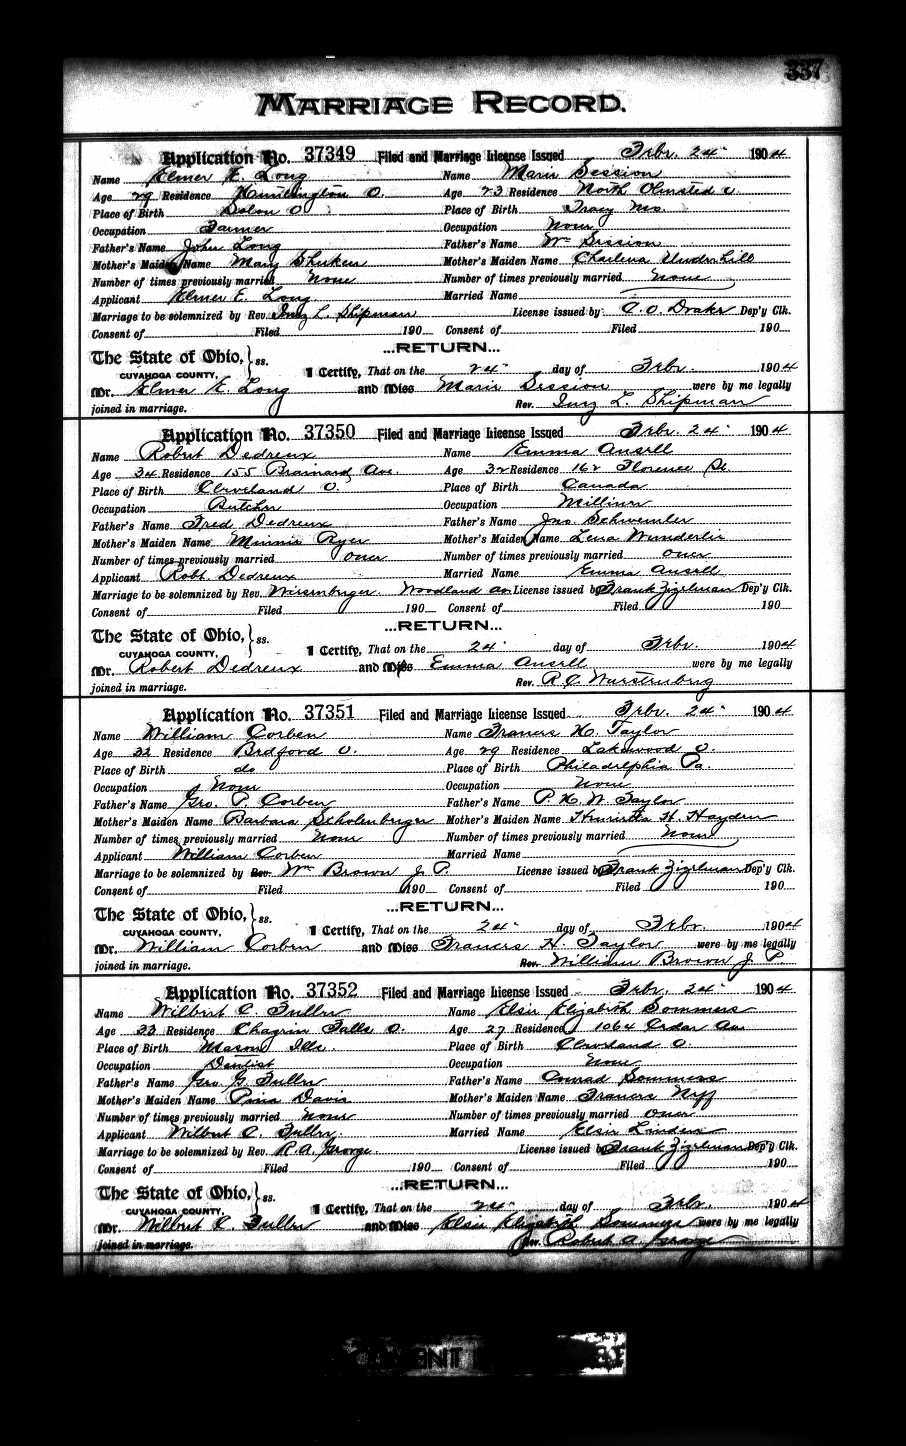 337
MARRIAGE RECORD.
Application No. 37349 Filed and Marriage License Issued Febr. 24" 1904
Name Elmer E. Long Name Marie Session
Age 29 Residence Huntington O. Age 23 Residence North Olmsted O.
Place of Birth Solon O Place of Birth Tracy Mo.
Occupation Farmer Occupation None
Father's Name John Long Father's Name Wm Session
Mother's Maiden Name Mary Shuker Mother's Maiden Name Charlena Underhill
Number of times previously married None Number of times previously married None
Applicant Elmer E. Long Married Name
Marriage to be solemnized by Rev. Inez L. Shipman License issued by C. O. Draker Dep'y Clk.
Consent of Filed 190 Consent of Filed 190
...RETURN...
The State of Ohio, ss.
CUYAHOGA COUNTY, I Certify, That on the 24" day of Febr. 1904
Mr. Elmer E. Long and Miss Marie Session were by me legally
joined in marriage. Rev. Inez L. Shipman
Application No. 37350 Filed and Marriage License Issued Febr. 24" 1904
Name Robert Dedreux Name Emma Ansell
Age 34 Residence 155 Brainard Ave. Age 32 Residence 162 Florence St.
Place of Birth Cleveland O. Place of Birth Canada
Occupation Butcher Occupation Milliner
Father's Name Fred Dedreux Father's Name Jno. Schwemler
Mother's Maiden Name Minnie Ryer Mother's Maiden Name Lena Wunderlir
Number of times previously married once Number of times previously married once
Applicant Robt. Dedreux Married Name Emma Ansell
Marriage to be solemnized by Rev. Wirsenberger Woodland Av. License issued by Frank Zizelman Dep'y Clk.
Consent of Filed 190 Consent of Filed 190
...RETURN...
The State of Ohio, ss.
CUYAHOGA COUNTY, I Certify, That on the 24" day of Febr. 1904
Mr. Robert Dedreux and Mrs Emma Ansell were by me legally
joined in marriage. Rev. R C Wurstenbrg
Application No. 37351 Filed and Marriage License Issued Febr. 24" 1904
Name William Corben Name Frances H. Taylor
Age 32 Residence Bedford O. Age 29 Residence Lakewood O.
Place of Birth do Place of Birth Philadelphia Pa
Occupation None Occupation None
Father's Name Geo. P. Corben Father's Name P. H. W. Taylor
Mother's Maiden Name Barbara Scholenberger Mother's Maiden Name Henrietta H. Hayden
Number of times previously married None Number of times previously married None
Applicant William Corben Married Name
Marriage to be solemnized by Rev. Wm Brown J. P. License issued by Frank Zizelman Dep'y Clk.
Consent of Filed 190 Consent of Filed 190
...RETURN...
The State of Ohio, ss.
CUYAHOGA COUNTY, I Certify, That on the 24" day of Febr. 1904
Mr. William Corben and Miss Frances H. Taylor were by me legally
joined in marriage. Rev. William Brown J. P.
Application No. 37352 Filed and Marriage License Issued Febr. 24" 1904
Name Wilbert C. Fuller Name Elsie Elizabeth Sommers
Age 33 Residence Chagrin Falls O. Age 27 Residence 1064 Cedar Ave
Place of Birth Mason Ills. Place of Birth Cleveland O.
Occupation Dentist Occupation None
Father's Name Geo. G. Fuller Father's Name Conrad Sommers
Mother's Maiden Name Davis Mother's Maiden Name Frances Neff
Number of times previously married None Number of times previously married once
Applicant Wilbert C. Fuller Married Name Elsie Linders
Marriage to be solemnized by Rev. R. A. George. License issued by Frank Zizelman Dep'y Clk.
Consent of Filed 190 Consent of Filed 190
...RETURN...
The State of Ohio, ss.
CUYAHOGA COUNTY, I Certify, That on the 24" day of Febr. 1904
Mr. Wilbert C. Fuller and Miss Elsie Elizabeth Sommers were by me legally
joined in marriage. Rev. Robert A. George